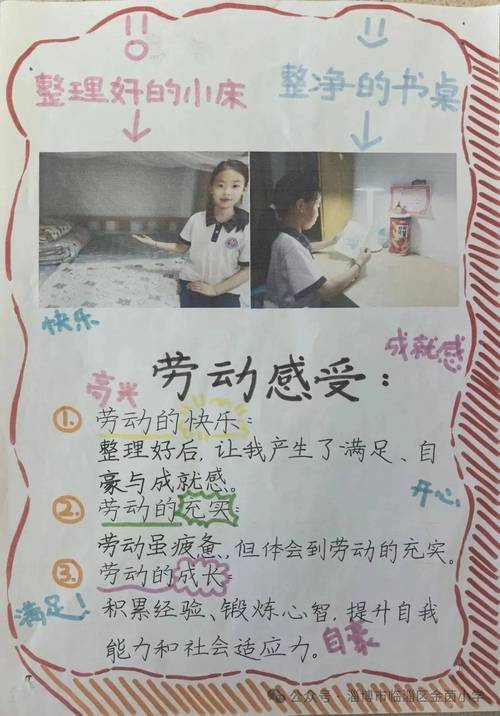 整理好的小床 整净的书桌
快乐
成就感
劳动感受：
高光
1. 劳动的快乐：
整理好后，让我产生了满足、自
豪与成就感。
开心
2. 劳动的充实：
劳动虽疲惫，但体会到劳动的充实。
3. 劳动的成长：
满足！
积累经验、锻炼心智，提升自我
能力和社会适应力。
自豪
公众号·淄博市临淄区金茵小学